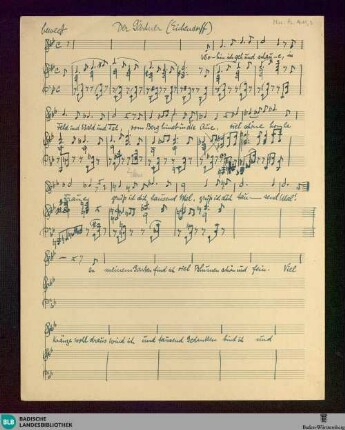 bewegt Der Gärtner (Eichendorff)
Wo-hin ich geh und schaue, in
Feld und Wald und Tal, vom Berg hinab in die Aue, viel schöne hohe
Fraue, grüß ich dich tausend Mal, grüß ich dich tau-send Mal.
In meinem Garten find ich viel Blumen schön und fein. Viel
Kränze wohl draus wind ich und tausend Gedanken bind ich und
BLB
BADISCHE
LANDESBIBLIOTHEK
Baden-Württemberg